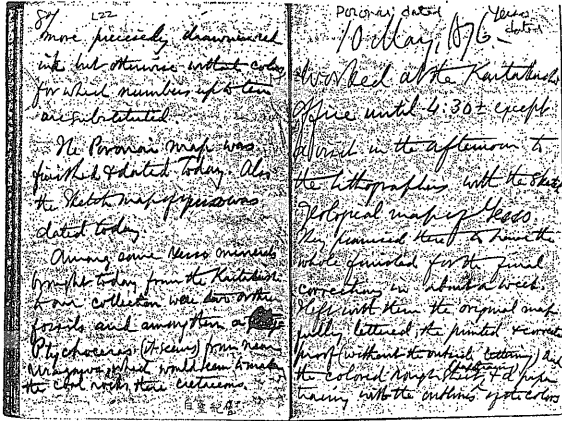 87
L22
more precisely drawn in red
ink but otherwise without colors
for which numbers up to ten
are substituted.
The Poronai map was
finished & dated today. Also
the Sketch map of Yesso was
dated today
Among some Yesso minerals
brought today from the Kaitakushi
from collection were some other
fossils and among them a
Ptychoceras (it seems) from near
which would seem to make
the coal rocks there cretaceous.
白堊紀層
Poronai dated
Yesso dated
10 May, 1876.
Worked at the Kaitakushi
office until 4:30± except
a visit in the afternoon to
the lithographers with the Sketch
Geological map of Yesso.
They promised there to have the
whole finished for the final
correcting in about a week.
I left with them the original map
fully lettered the printed & corrected
proof without the outside lettering, and
the colored rough & a paper
tracing with the outlines of the colors